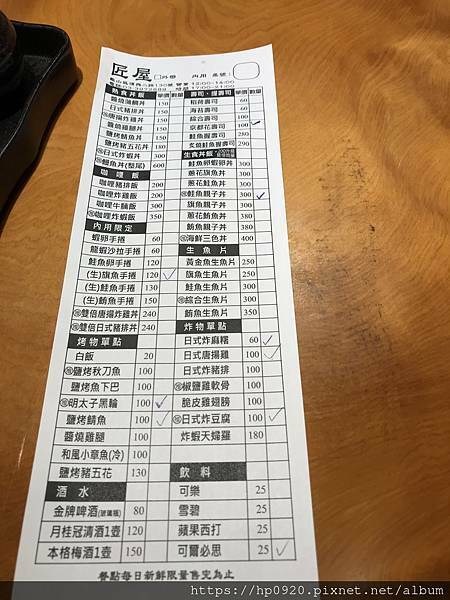 匠屋 □外帶 內用 桌號：
營業 12:00-14:00
17:00-21:00
熟食丼飯 單價 數量
醬燒蒲鯛丼 150
日式豬排丼 150
唐揚炸雞丼 150
醬燒雞腿丼 150
鹽烤鯖魚丼 150
鹽烤豬五花丼 180
日式炸蝦丼 300
鰻魚丼(整尾) 600
咖哩飯
咖哩豬排飯
咖哩炸雞飯 200
咖哩牛腩飯 200
咖哩炸蝦飯 350
內用限定
蝦卵手捲 60
龍蝦沙拉手捲 60
鮭魚卵手捲 120
(生)旗魚手捲 120
(生)鮭魚手捲 130
(生)鮪魚手捲 160
雙倍唐揚炸雞丼 240
雙倍日式豬排丼 240
烤物單點
白飯 20
鹽烤秋刀魚 100
鹽烤魚下巴 100
明太子黑輪 100
鹽烤鯖魚 100
醬燒雞腿 100
和風小章魚(冷) 100
鹽烤豬五花 130
酒水
金牌啤酒(玻璃瓶) 80
月桂冠清酒1壺 120
本格梅酒1壺 150
壽司、握壽司 單價 數量
稻荷壽司 60
海苔壽司 60
綜合壽司 100
京都花壽司 100
鮭魚握壽司 280
炙燒鮭魚握壽司 290
生食丼飯
鮭魚卵蝦卵丼 300
蔥花旗魚丼 300
蔥花鮭魚丼 300
鮭魚親子丼 300
旗魚親子丼 300
蔥花鮪魚丼 350
鮪魚親子丼 380
海鮮三色丼 400
生魚片
黃金魚生魚片 250
旗魚生魚片 250
鮭魚生魚片 300
綜合生魚片 300
鮪魚生魚片 350
炸物單點
日式炸麻糬 60
日式唐揚雞 100
日式炸豬排 100
椒鹽雞軟骨 100
脆皮雞翅膀 100
日式炸豆腐 100
炸蝦天婦羅 180
飲料
可樂 25
雪碧 25
蘋果西打 25
可爾必思 25
餐點每日新鮮限量售完為止
https://hp0920.pixnet.net/album